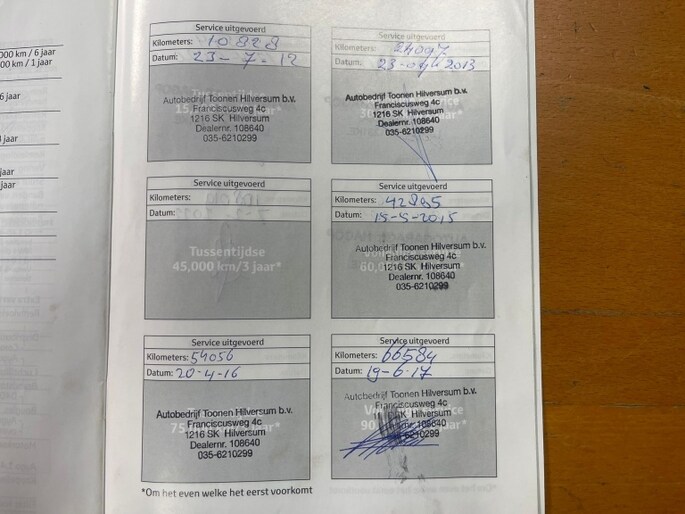 000 km / 6 jaar
000 km / 1 jaar
6 jaar
jaar
jaar
jaar
Service uitgevoerd
Kilometers: 10828
Datum: 23-7-12
Tussentijdse
Autobedrijf Toonen Hilversum b.v.
Franciscusweg 4c
1216 SK Hilversum
Dealernr. 108640
035-6210299
Service uitgevoerd
Kilometers: 24097
Datum: 23-2013
Autobedrijf Toonen Hilversum b.v.
Franciscusweg 4c
1216 SK Hilversum
Dealernr. 108640
035-6210299
Service uitgevoerd
Kilometers:
Datum:
Tussentijdse
45,000 km/3 jaar*
Service uitgevoerd
Kilometers: 42895
Datum: 15-5-2015
Autobedrijf Toonen Hilversum b.v.
Franciscusweg 4c
1216 SK Hilversum
Dealernr. 108640
035-6210299
Service uitgevoerd
Kilometers: 54056
Datum: 20-4-16
Autobedrijf Toonen Hilversum b.v.
Franciscusweg 4c
1216 SK Hilversum
Dealernr. 108640
035-6210299
Service uitgevoerd
Kilometers: 66584
Datum: 19-6-17
Autobedrijf Toonen Hilversum b.v.
Franciscusweg 4c
SK Hilversum
108640
035-6210299
*Om het even welke het eerst voorkomt